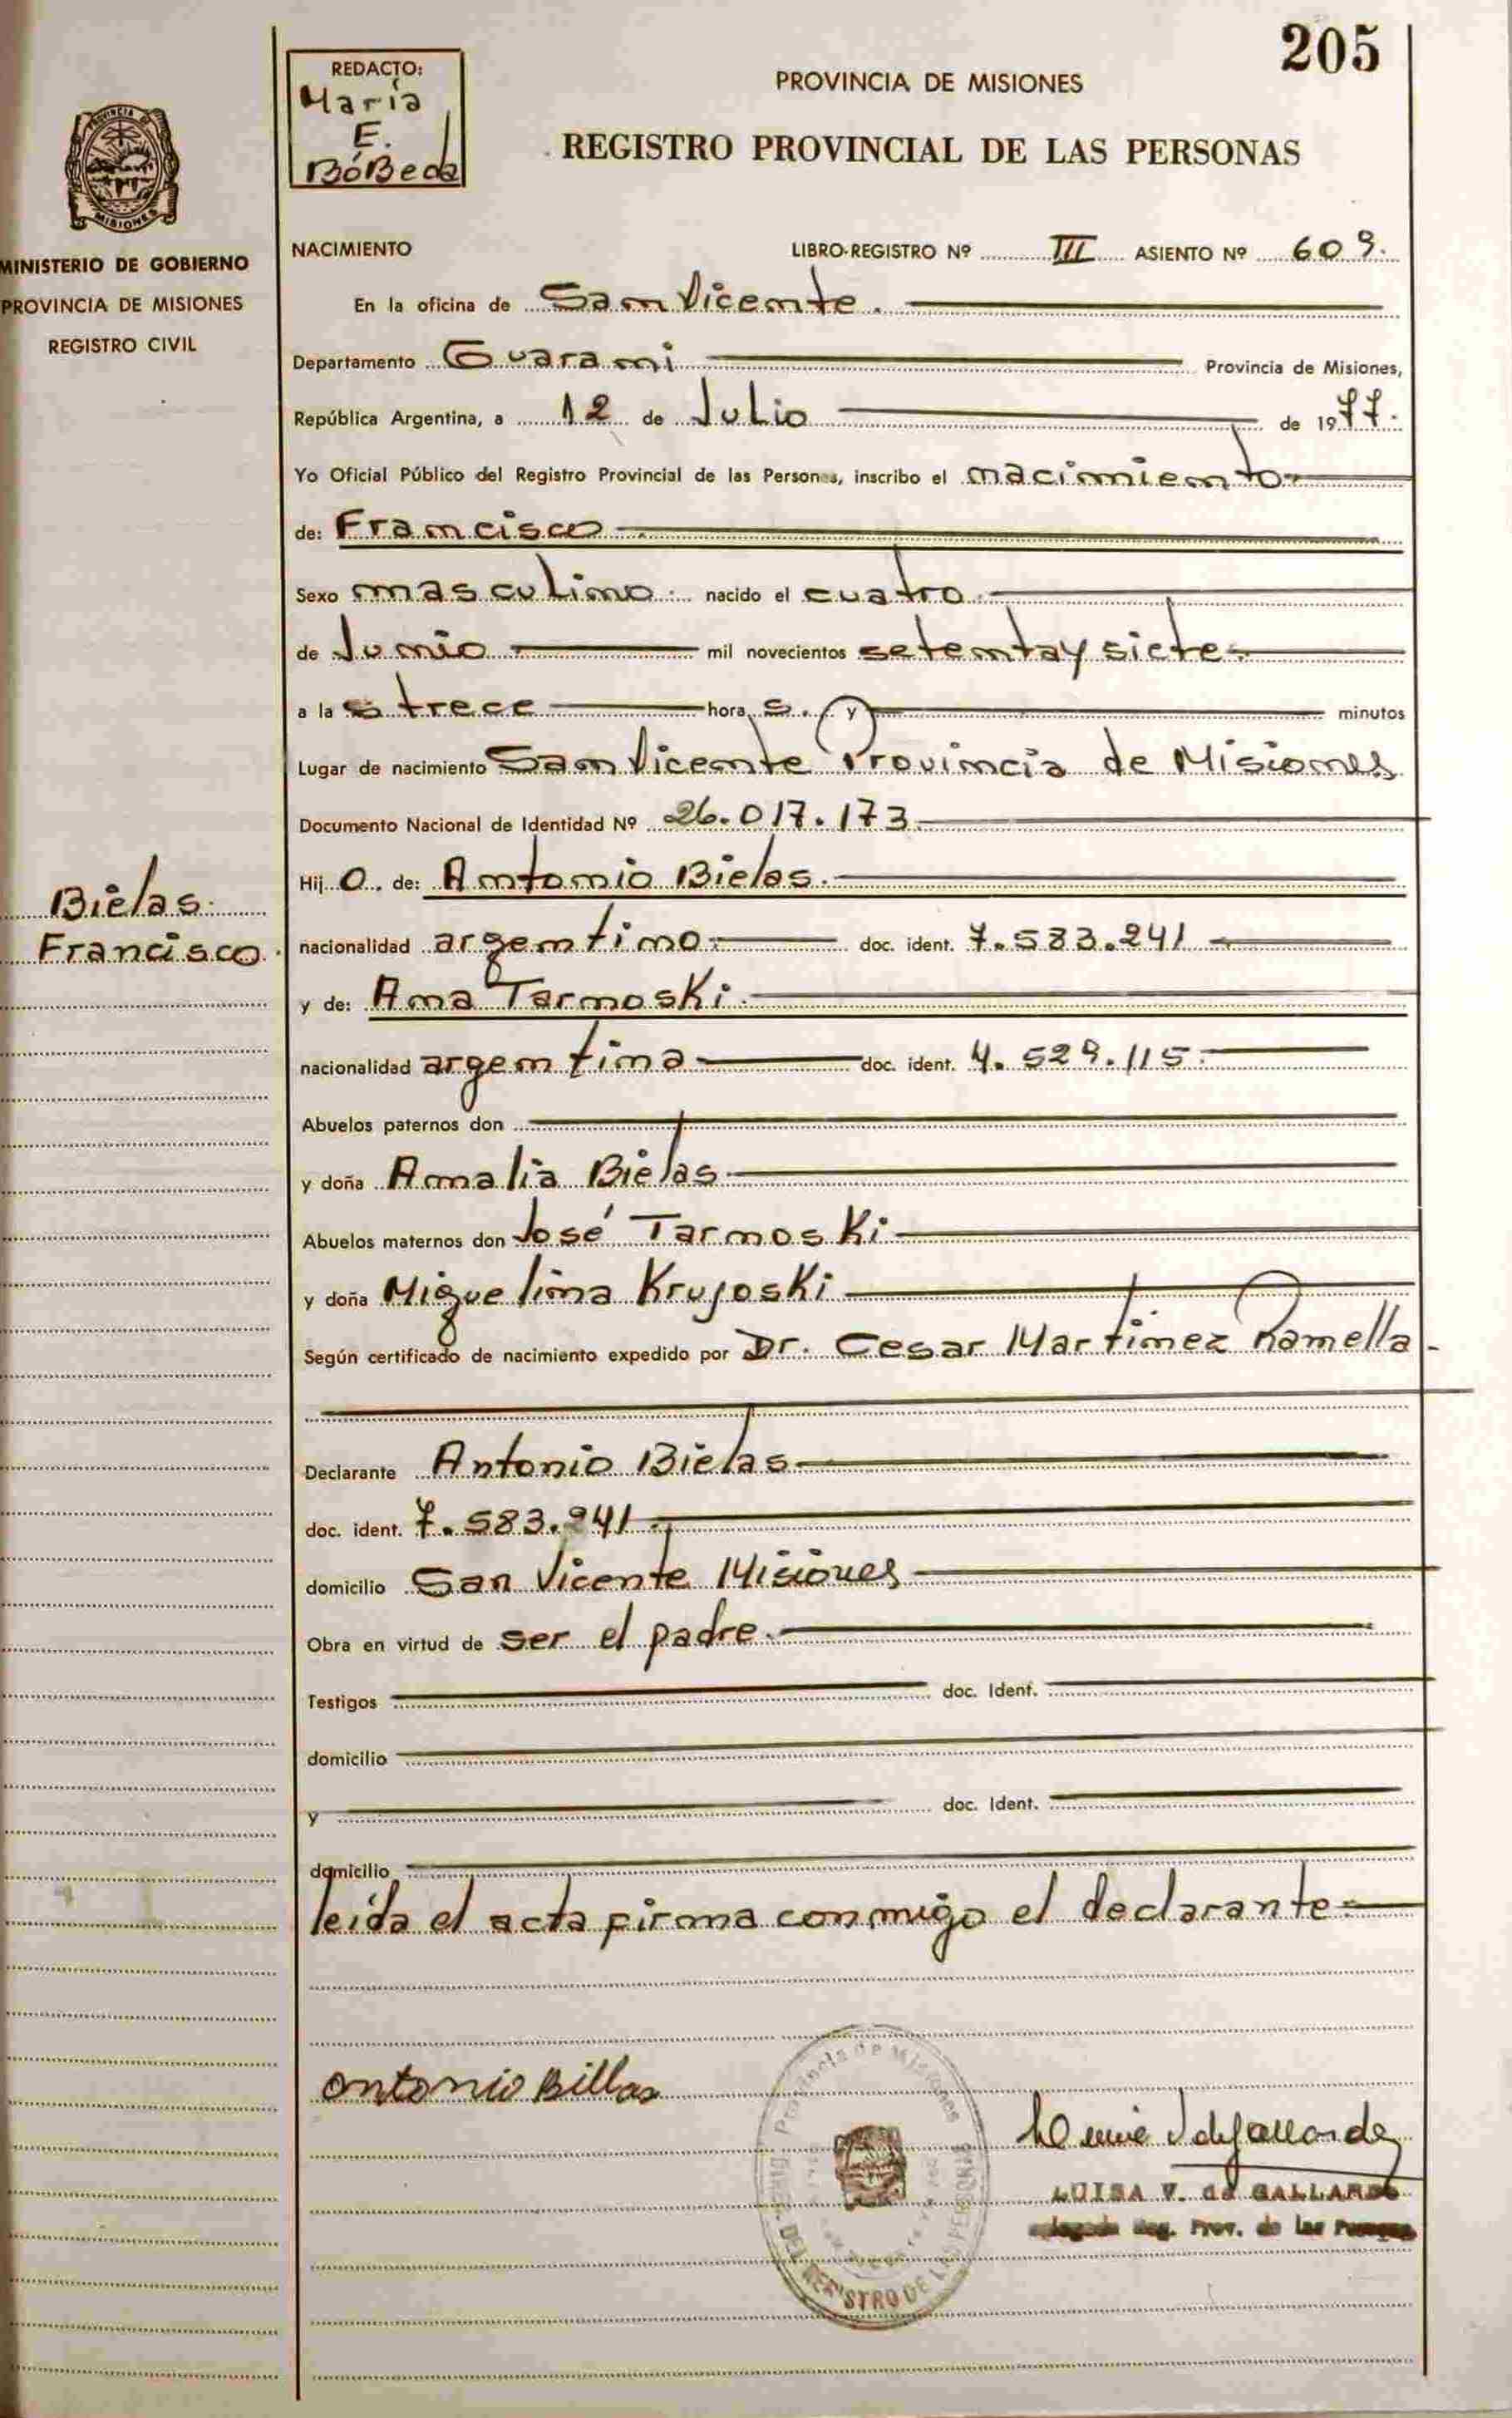 205
REDACTO:
María
E.
BóBeda
PROVINCIA DE MISIONES
REGISTRO PROVINCIAL DE LAS PERSONAS
PROVINCIA DE
MISIONES
MINISTERIO DE GOBIERNO
PROVINCIA DE MISIONES
REGISTRO CIVIL
NACIMIENTO LIBRO-REGISTRO Nº III ASIENTO Nº 609.
En la oficina de San Vicente.
Departamento Guarani Provincia de Misiones,
República Argentina, a 12 de Julio de 1977.
Yo Oficial Público del Registro Provincial de las Personas, inscribo el nacimiento
de: Francisco
Sexo masculino nacido el cuatro
de Junio mil novecientos setentay siete
a la s trece hora s. y minutos
Lugar de nacimiento San Vicente Provincia de Misiones
Documento Nacional de Identidad Nº 26.017.173
Hij o. de: Antonio Bielas.
nacionalidad argentino doc. ident. 7.583.241
y de: Ana Tarnoski
nacionalidad argentina doc. ident. 4.529.115
Abuelos paternos don
y doña Amalia Bielas
Abuelos maternos don José Tarnoski
y doña Miguelina Krujoski
Según certificado de nacimiento expedido por Dr. Cesar Martinez Ramella
Declarante Antonio Bielas
doc. ident. 7.583.241
domicilio San Vicente Misiones
Obra en virtud de ser el padre.
Testigos doc. Ident.
domicilio
y doc. Ident.
domicilio
leída el acta firma conmigo el declarante
Bielas
Francisco.
antonio Billas
Provincia de Misiones
DEL REGISTRO DE LAS PERSONAS
LUISA V. de GALLARDO
Reg. Prov. de las Personas